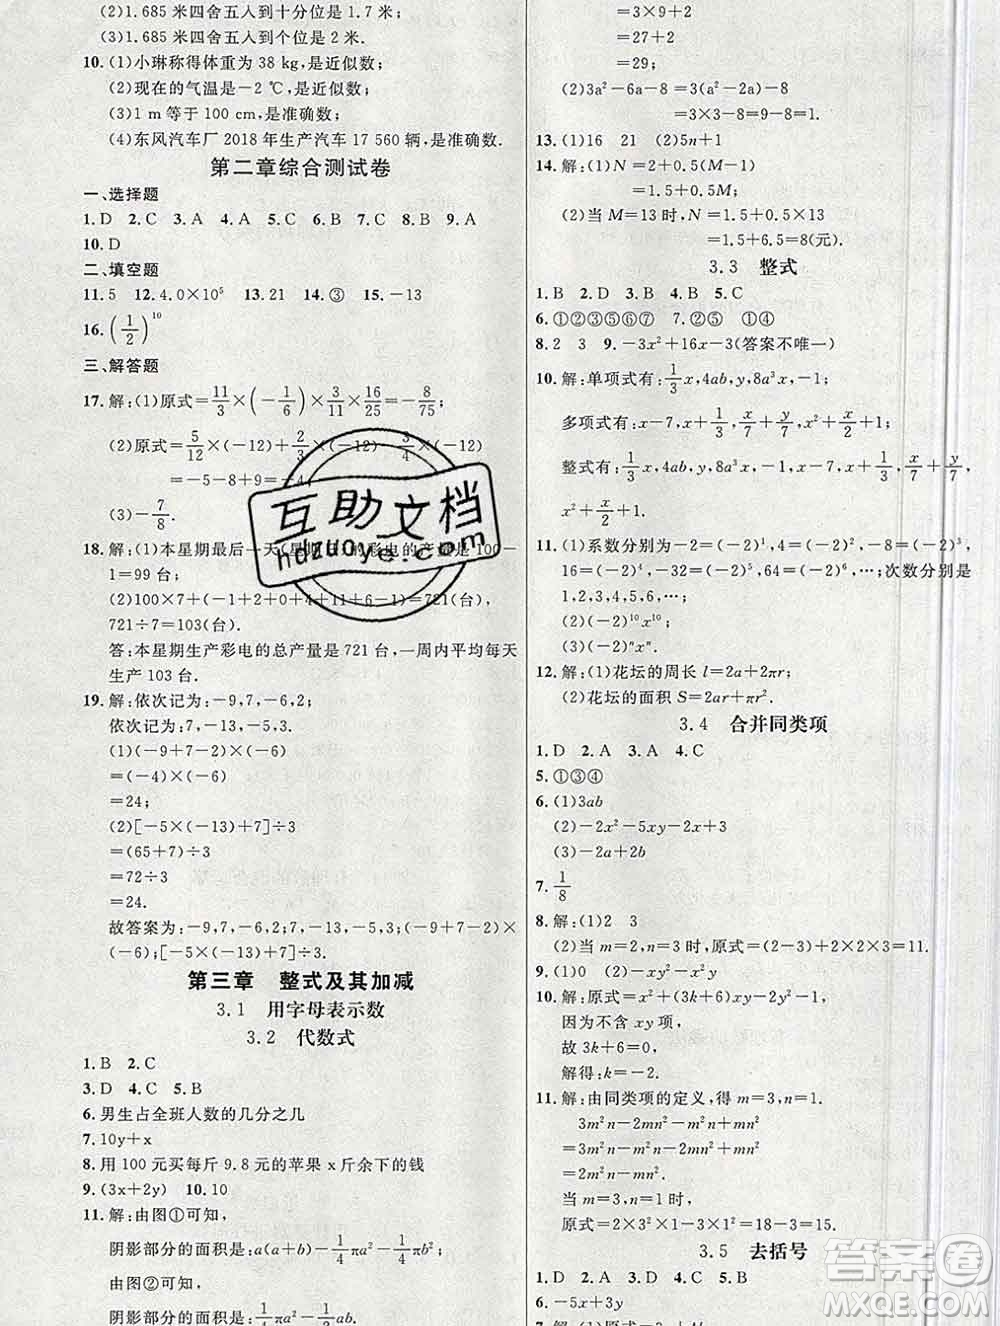 (2)1.685 米四舍五入到十分位是 1.7 米;
(3)1.685 米四舍五入到个位是 2 米.
10.(1)小琳称得体重为 38 kg,是近似数;
(2)现在的气温是-2 ℃,是近似数;
(3)1 m 等于 100 cm,是准确数;
(4)东风汽车厂 2018 年生产汽车 17 560 辆,是准确数.
第二章综合测试卷
一、选择题
1.D 2.C 3.A 4.A 5.C 6.B 7.B 8.B 9.A
10.D
二、填空题
11.5 12.4.0×10⁵ 13.21 14.③ 15.-13
16.(1/2)¹⁰
三、解答题
17.解:(1)原式=11/3×(-1/6)×3/11×16/25=-8/75;
(2)原式=5/12×(-12)+2/3×(-12)-3/4×(-12)
=-5-8+9=-4;
(3)-7/8.
18.解:(1)本星期最后一天(星期日)的彩电的产量是 100-
1=99(台);
(2)100×7+(-1+2+0+4+11+6-1)=721(台),
721÷7=103(台).
答:本星期生产彩电的总产量是 721 台,一周内平均每天
生产 103 台.
19.解:依次记为:-9,7,-6,2;
依次记为:7,-13,-5,3.
(1)(-9+7-2)×(-6)
=(-4)×(-6)
=24;
(2)[-5×(-13)+7]÷3
=(65+7)÷3
=72÷3
=24.
故答案为:-9,7,-6,2;7,-13,-5,3;(-9+7-2)
×(-6);[-5×(-13)+7]÷3.
第三章 整式及其加减
3.1 用字母表示数
3.2 代数式
1.B 2.C
3.D 4.C 5.B
6.男生占全班人数的几分之几
7.10y+x
8.用 100 元买每斤 9.8 元的苹果 x 斤余下的钱
9.(3x+2y) 10.10
11.解:由图①可知,
阴影部分的面积是:a(a+b)-1/4πa²-1/4πb²;
由图②可知,
阴影部分的面积是:1/4πa²-1/2ab.
=3×9+2
=27+2
=29;
(2)3a²-6a-8=3(a²-2a)-8
=3×3-8=1.
13.(1)16 21 (2)5n+1
14.解:(1)N=2+0.5(M-1)
=1.5+0.5M;
(2)当 M=13 时,N=1.5+0.5×13
=1.5+6.5=8(元).
3.3 整式
1.B 2.D 3.B 4.B 5.C
6.①②③⑤⑥⑦ 7.②⑤ ①④
8.2 3 9.-3x²+16x-3(答案不唯一)
10.解:单项式有:1/3x,4ab,y,8a³x,-1;
多项式有:x-7,x+1/3,x/7+y/7,x²+x/2+1;
整式有:1/3x,4ab,x-7,y,8a³x,-1,x+1/3,x/7+y/7,
x²+x/2+1.
11.(1)系数分别为-2=(-2)¹,4=(-2)²,-8=(-2)³,
16=(-2)⁴,-32=(-2)⁵,64=(-2)⁶,…;次数分别是
1,2,3,4,5,6,…;
(2)(-2)¹⁰x¹⁰;
(3)(-2)ⁿxⁿ.
12.解:(1)花坛的周长 l=2a+2πr;
(2)花坛的面积 S=2ar+πr².
3.4 合并同类项
1.D 2.A 3.A 4.C
5.①③④
6.(1)3ab
(2)-2x²-5xy-2x+3
(3)-2a+2b
7.1/8
8.解:(1)2 3
(2)当 m=2,n=3 时,原式=(2-3)+2×2×3=11.
9.(1)0 (2)-x²y-x²y
10.解:原式=x²+(3k+6)xy-3y²-y+1,
因为不含 xy 项,
故 3k+6=0,
解得:k=-2.
11.解:由同类项的定义,得 m=3,n=1.
3m²n-2mn²-m²n+mn²
=3m²n-m²n-2mn²+mn²
=2m²n-mn².
当 m=3,n=1 时,
原式=2×3²×1-3×1²=18-3=15.
3.5 去括号
1.D 2.A 3.C 4.D 5.B
6.-5x+3y
互助文档
hdzuoye.com
答案圈
MXQE.COM